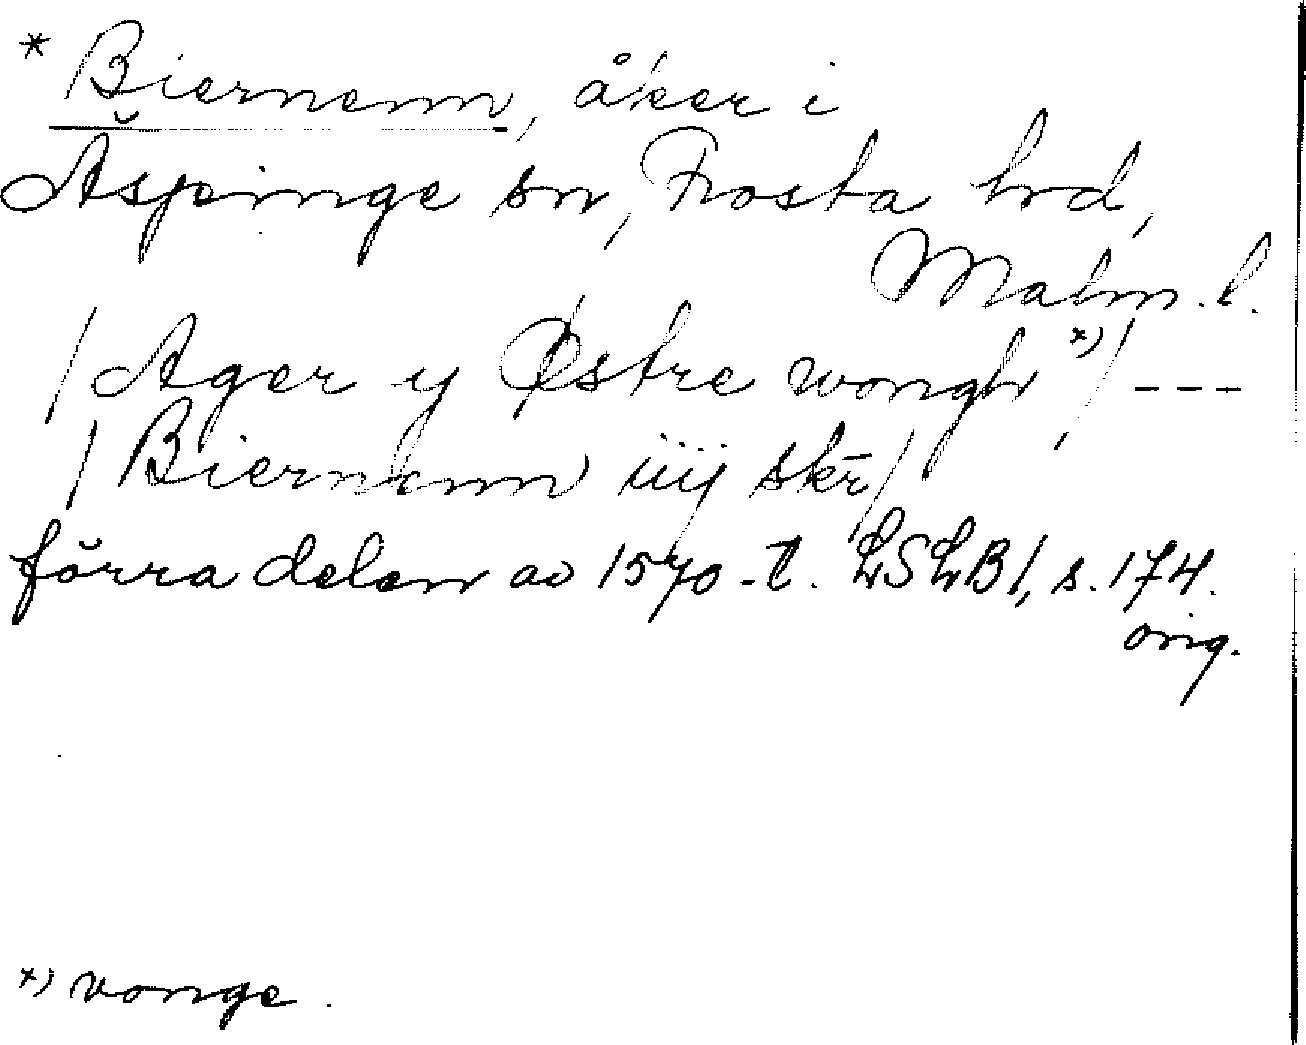 * Biernenn, åker i
Äspinge sn, Frosta hd,
Malm. l.
/Ager y Østre wongh *)/ ---
/Biernenn iiij skr/
förra delen av 1570-t. LSLB 1, s. 174.
orig.
*) vonge.